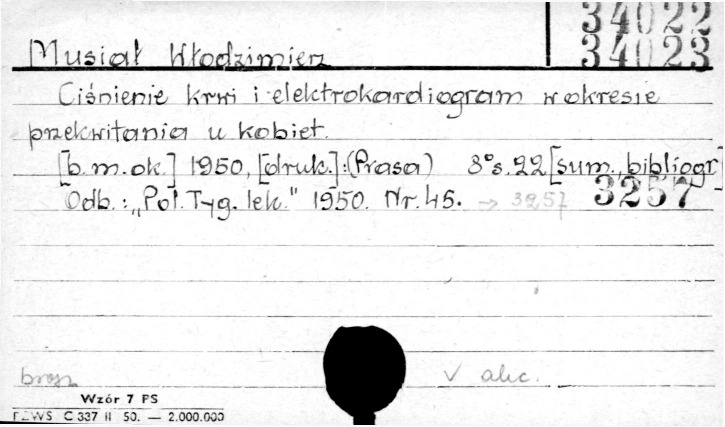 34022
34023
Musiał Włodzimierz
Ciśnienie krwi i elektrokardiogram w okresie
przekwitania u kobiet.
[b.m.ok.] 1950, [druk.]:(Prasa) 8° s.22 [sum., bibliogr]
Odb.: „Pol. Tyg. lek." 1950. Nr. 45. → 3257 3257
brosz V akc.
Wzór 7 PS
PZWS C 337 II 50. — 2.000.000